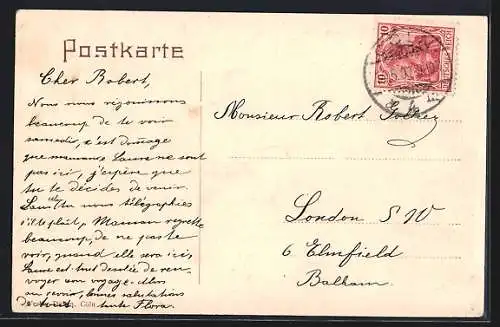 Postkarte
Cher Robert,
Nous nous réjouissons
beaucoup de te voir
samedi, c'est domage
que maman, Laure ne sont
pas ici, j'espère que
tu te décides de venir.
tu nous télégraphies
s'il te plait, Maman regrette
beaucoup, de ne pas te
voir, quand elle sera ici,
Laure est tout desolée de ren-
voyer son voyage. Alors
au revoir, bonnes salutations
de tante Flora.
Monsieur Robert
London S W
6 Elmfield
Balham
10 10
DEUTSCHES REICH
Cöln